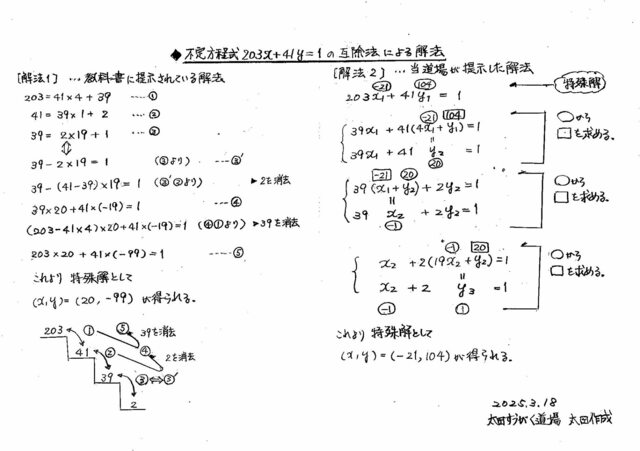 ◆ 不定方程式203x+41y=1の互除法による解法
[解法1] … 教科書に提示されている解法
203=41×4+39 ----①
41=39×1+2 ----②
39=2×19+1 ----③
⇕
39-2×19=1 (③より) ----③′
39-(41-39)×19=1 (③′②より) ▶2を消去
39×20+41×(-19)=1 ----④
(203-41×4)×20+41×(-19)=1 (④①より) ▶39を消去
203×20+41×(-99)=1 ----⑤
これより特殊解として
(x,y)=(20,-99)が得られる。
203 ① ⑤ 39を消去
41 ② ④ 2を消去
39 ③⇔③′
2
[解法2] … 当道場が提示した解法
-21 104 特殊解
203x₁+41y₁=1
-21 104 ○から
39x₁+41(4x₁+y₁)=1 □を求める。
=
39x₁+41 y₂=1
20
-21 20
39(x₁+y₂)+2y₂=1 ○から
= □を求める。
39 x₂ +2y₂=1
-1
-1 20
x₂+2(19x₂+y₂)=1 ○から
= □を求める。
x₂+2 y₃ =1
-1 1
これより特殊解として
(x,y)=(-21,104)が得られる。
2025.3.18
太田すうがく道場 太田作成